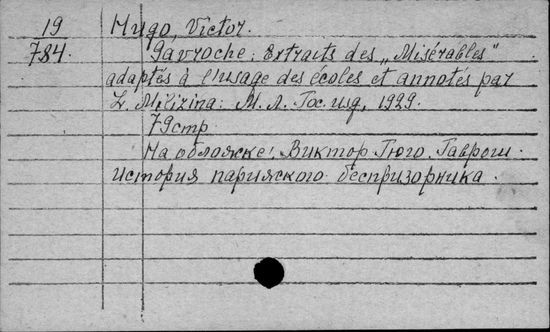 19 Hugo, Victor.
784. Gavroche: Extraits des „Misérables"
adaptés à l'usage des écoles et annotés par
Z. Milizina: М. Л. Гос. изд, 1929.
79 стр.
На обложке: Виктор Гюго. Гаврош.
История парижского беспризорника.